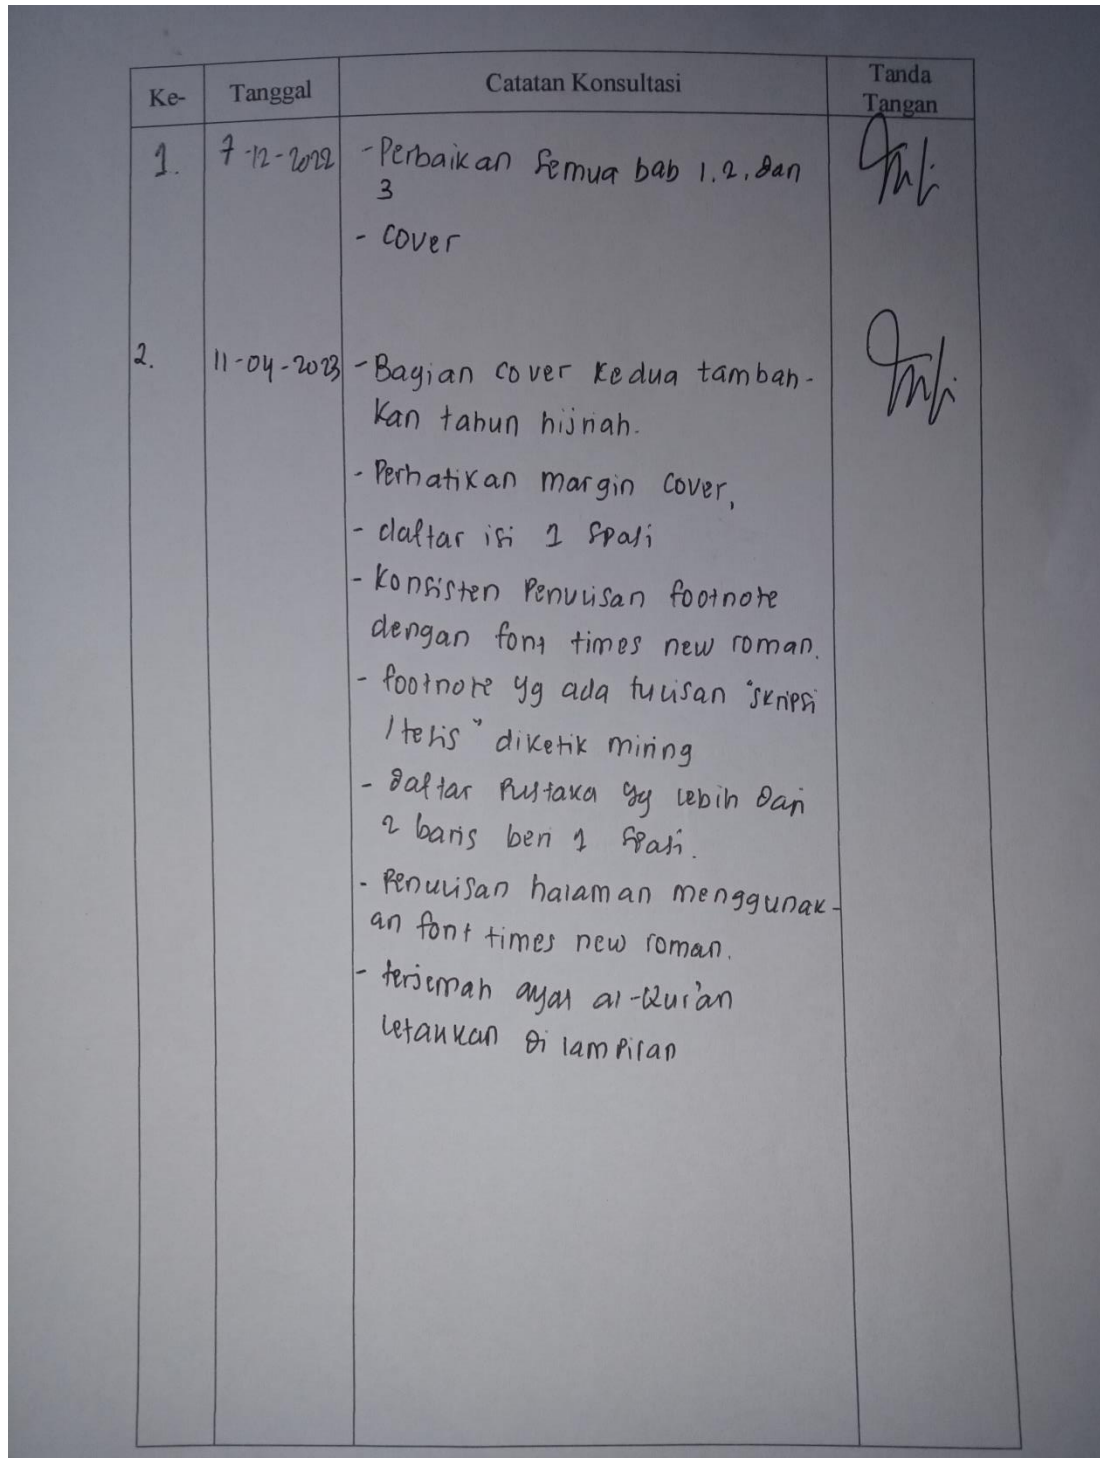 Ke- Tanggal Catatan Konsultasi Tanda
Tangan
1. 7-12-2022 - Perbaikan semua bab 1, 2, dan
3
- cover
2. 11-04-2023 - Bagian cover kedua tambah-
kan tahun hijriah.
- Perhatikan margin cover,
- daftar isi 1 spasi
- Konsisten Penulisan footnote
dengan font times new roman.
- footnote yg ada tulisan "skripsi
/tesis" diketik miring
- daftar Pustaka yg lebih dari
2 baris beri 1 spasi.
- Penulisan halaman menggunak-
an font times new roman.
- terjemah ayat al-Qur'an
letakkan di lampiran